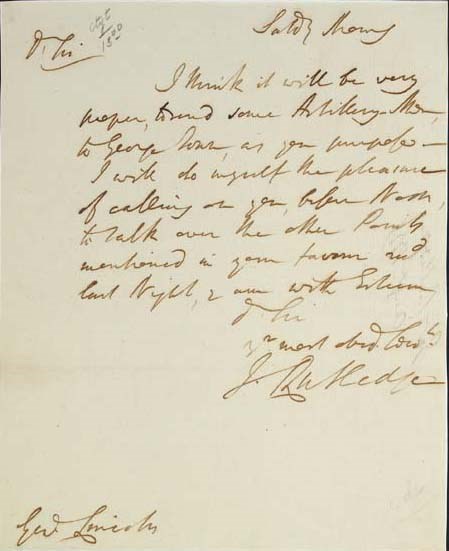 Satdy Morng
Dr Sir
I think it will be very
proper, to send some Artillery-Men,
to George Town, as you purpose—
I will do myself the pleasure
of calling on you, before Noon,
to talk over the other Points
mentioned in your favour recd
last Night, & am with Esteem
Dr Sir
yr most obed. Servt
J. Rutledge
Genl Lincoln